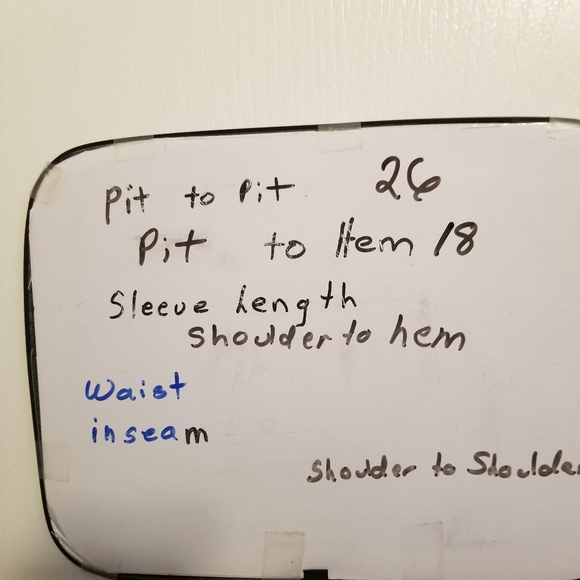 Pit to Pit 26
Pit to Hem 18
Sleeve Length
Shoulder to hem
Waist
inseam
Shoulder to Shoulder